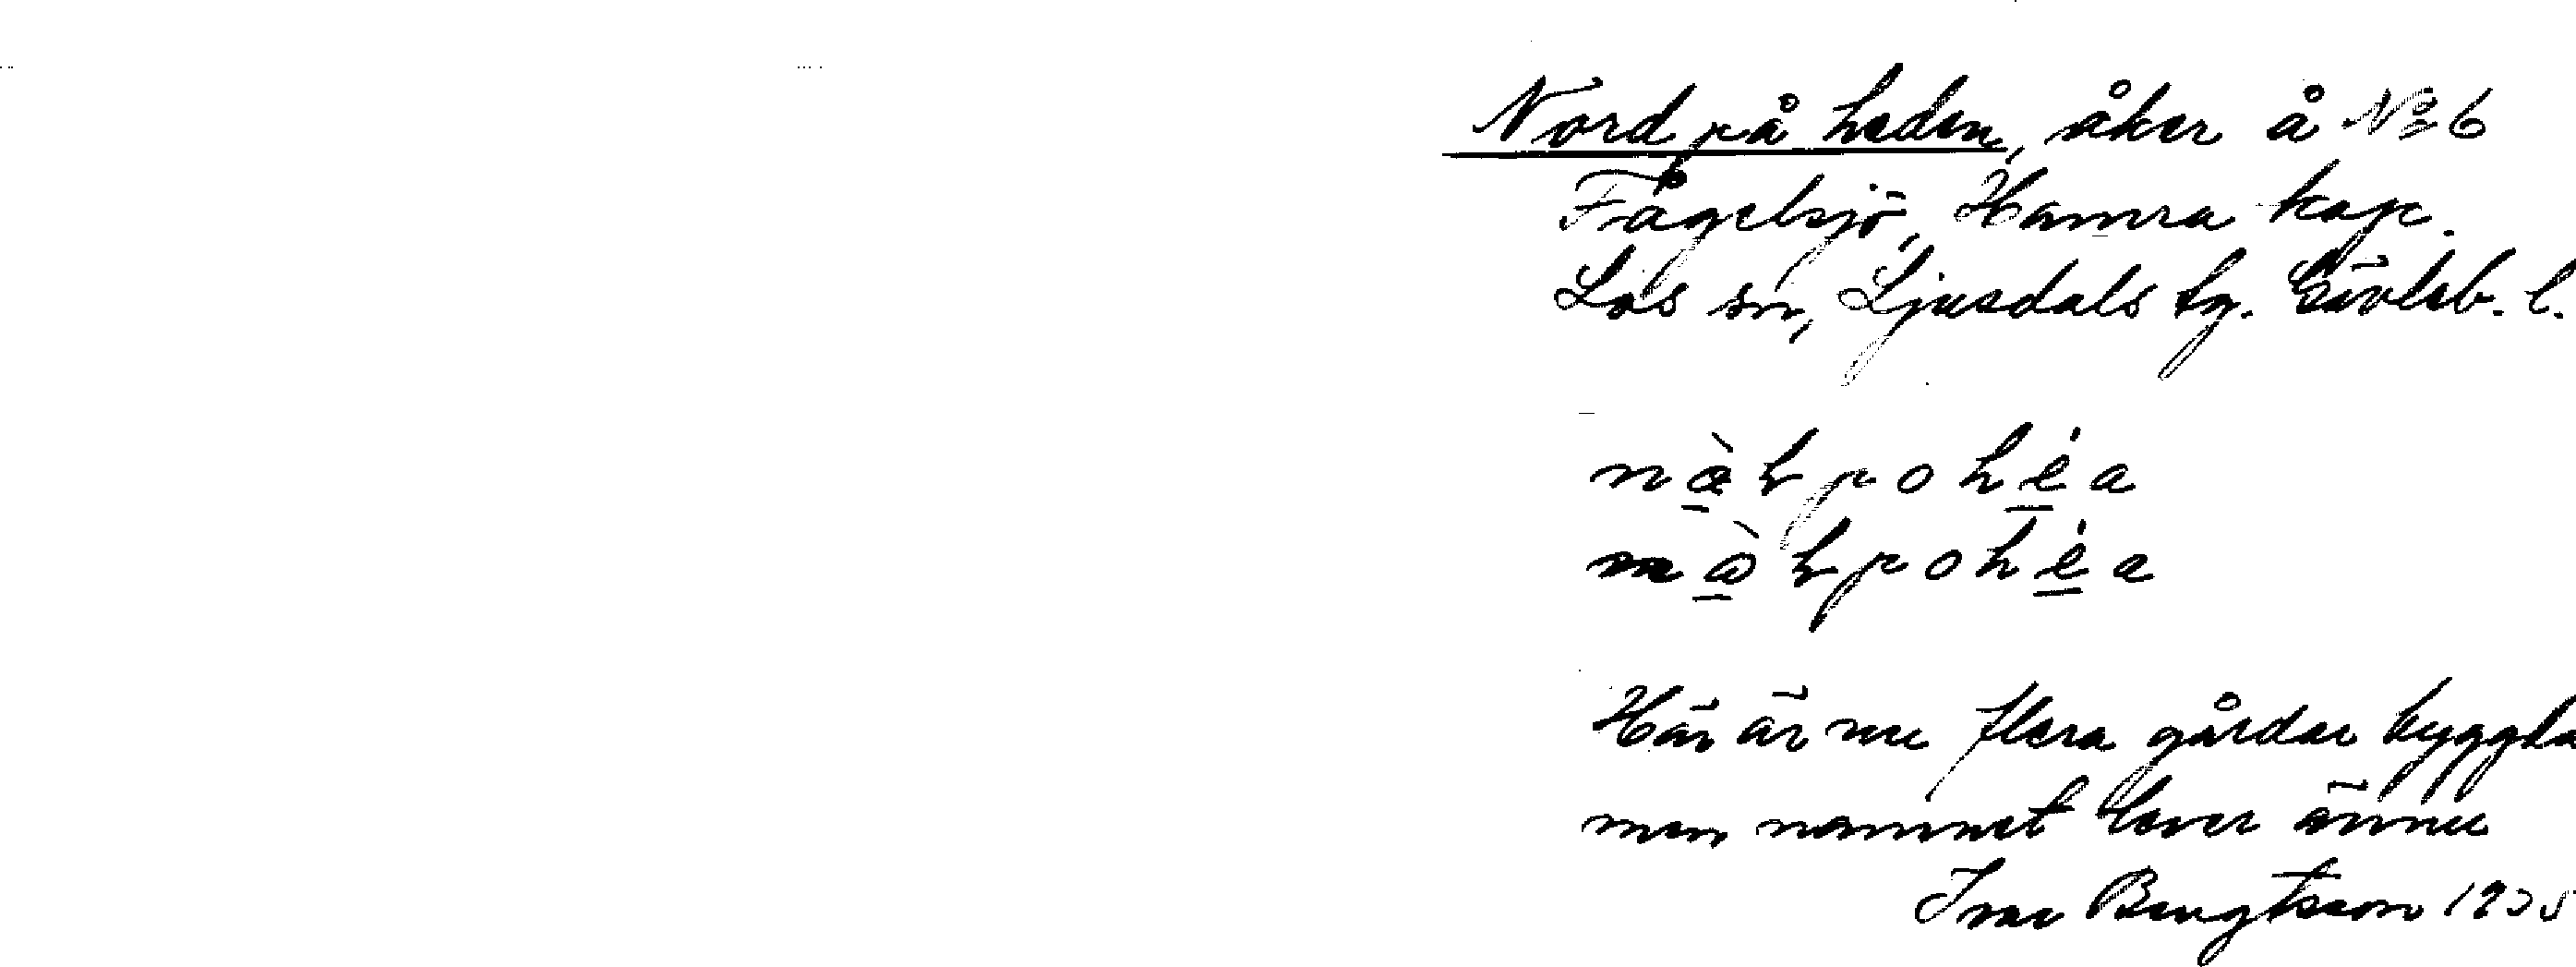 Nord på heden, åker å № 6
Fågelsjö, Hamra kap.
Los sn, Ljusdals tg. Gävleb. l.
Här är nu flera gårdar byggda
men namnet lever ännu
Ivar Bengtsson 1935